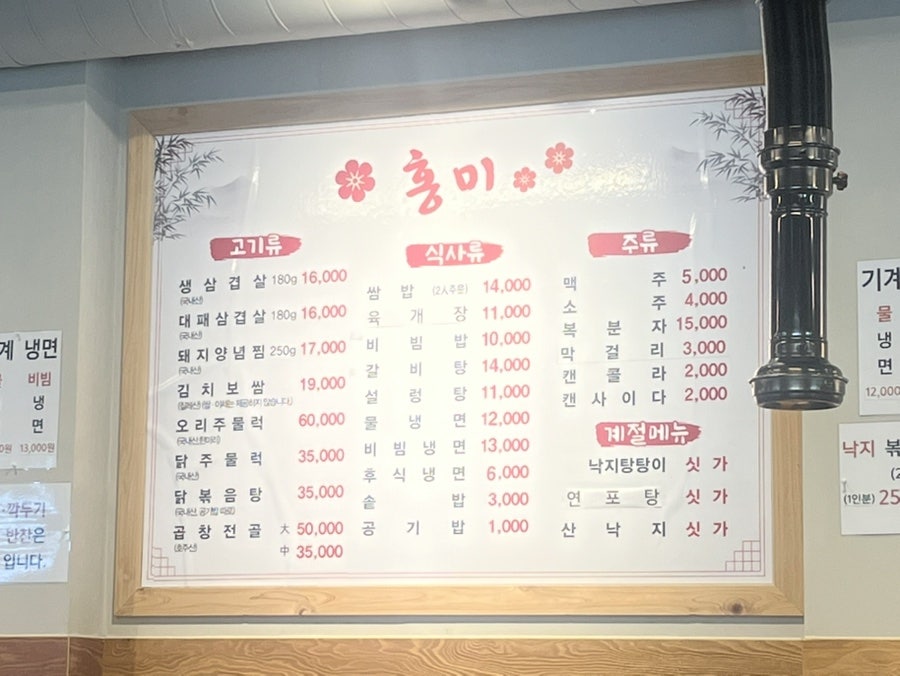 홍미
고기류
생삼겹살 180g 16,000
(국내산)
대패삼겹살 180g 16,000
(국내산)
돼지양념찜 250g 17,000
(국내산)
김치보쌈 19,000
오리주물럭 60,000
닭주물럭 35,000
(국내산)
닭볶음탕 35,000
곱창전골 大 50,000
(호주산) 中 35,000
식사류
쌈밥 (2人주문) 14,000
육개장 11,000
비빔밥 10,000
갈비탕 14,000
설렁탕 11,000
물냉면 12,000
비빔냉면 13,000
후식냉면 6,000
솥밥 3,000
공기밥 1,000
주류
맥주 5,000
소주 4,000
복분자 15,000
막걸리 3,000
캔콜라 2,000
캔사이다 2,000
계절메뉴
낙지탕탕이 싯가
연포탕 싯가
산낙지 싯가
계 냉면
비빔
냉
면
13,000원
깍두기
반찬은
입니다.
기계
물
냉
면
12,000
낙지 볶
(2
(1인분) 25